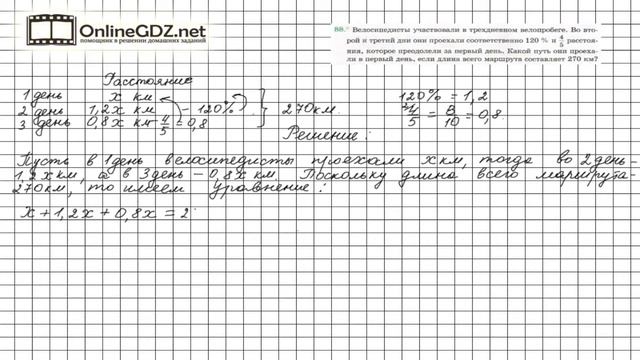 OnlineGDZ.net
помощник в решении домашних заданий
88.° Велосипедисты участвовали в трехдневном велопробеге. Во вто-
рой и третий дни они проехали соответственно 120 % и 4/5 расстоя-
ния, которое преодолели за первый день. Какой путь они проеха-
ли в первый день, если длина всего маршрута составляет 270 км?
Расстояние
1 день x км
2 день 1,2x км - 120% } 270 км.
3 день 0,8x км - 4/5 = 0,8
120% = 1,2
4/5 = 8/10 = 0,8
Решение:
Пусть в 1 день велосипедисты проехали x км, тогда во 2 день -
1,2x км, а в 3 день - 0,8x км. Поскольку длина всего маршрута -
270 км, то имеем уравнение:
x + 1,2x + 0,8x = 2